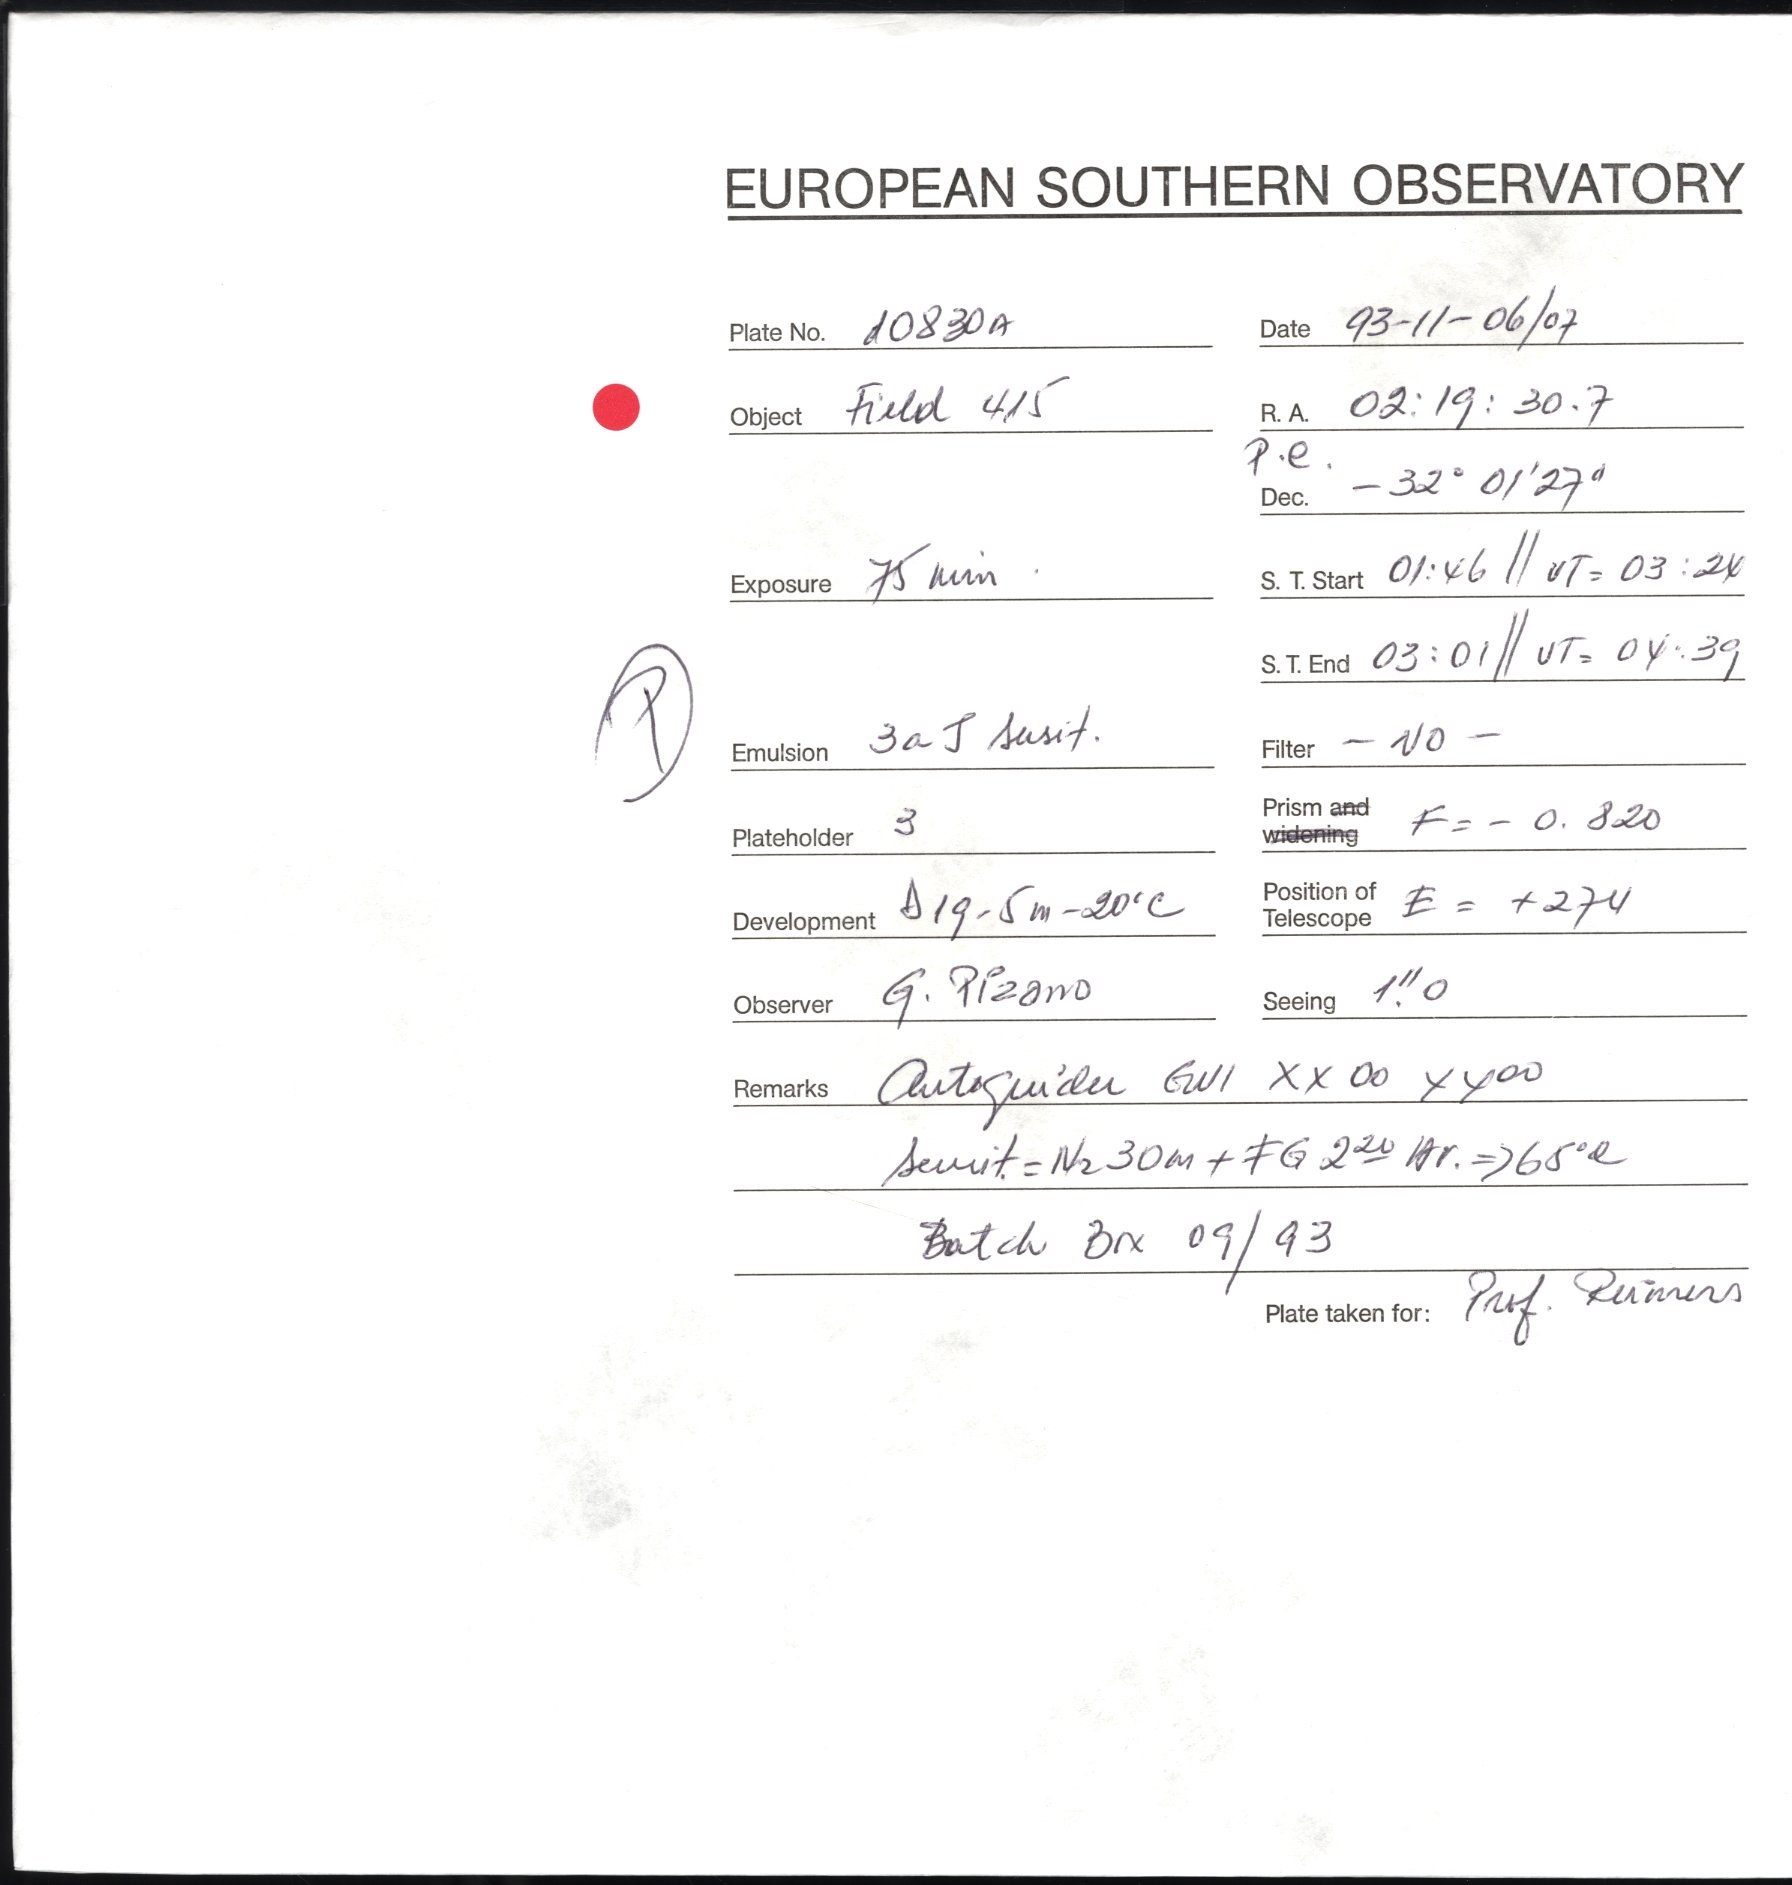 EUROPEAN SOUTHERN OBSERVATORY
Plate No. 10830A Date 93-11-06/07
Object Field 415 R. A. 02:19:30.7
P.e.
Dec. -32° 01'27"
Exposure 75 min. S. T. Start 01:46 // UT= 03:24
S. T. End 03:01 // UT= 04:39
P
Emulsion 3aJ sensit. Filter - NO -
Plateholder 3 Prism and widening F= - 0.820
Development D19-5m-20°C Position of Telescope E = +274
Observer G. Pizarro Seeing 1".0
Remarks Autoguider GW1 XX00 YY00
sensit.= N2 30m + FG 2 20 Hr. => 65°C
Batch Box 09/93
Plate taken for: Prof. Reimers